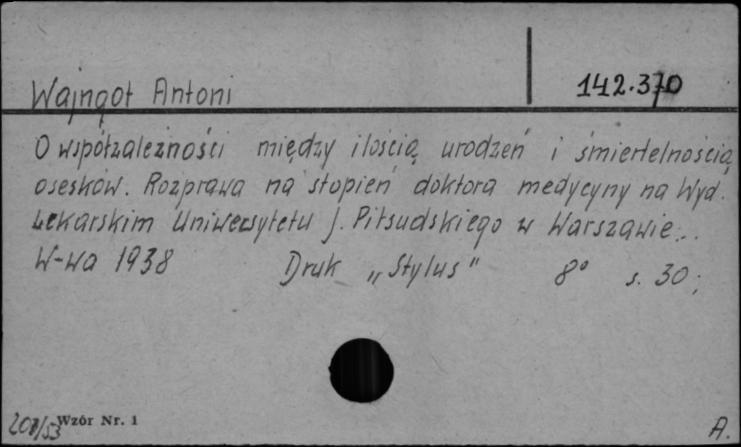 Wajngot Antoni
142.370
O współzależności między ilością urodzeń i śmiertelnością
osesków. Rozprawa na stopień doktora medycyny na Wyd.
Lekarskim Uniwersytetu J. Piłsudskiego w Warszawie...
W-wa 1938 Druk „Stylus" 8° s. 30;
Wzór Nr. 1
A.